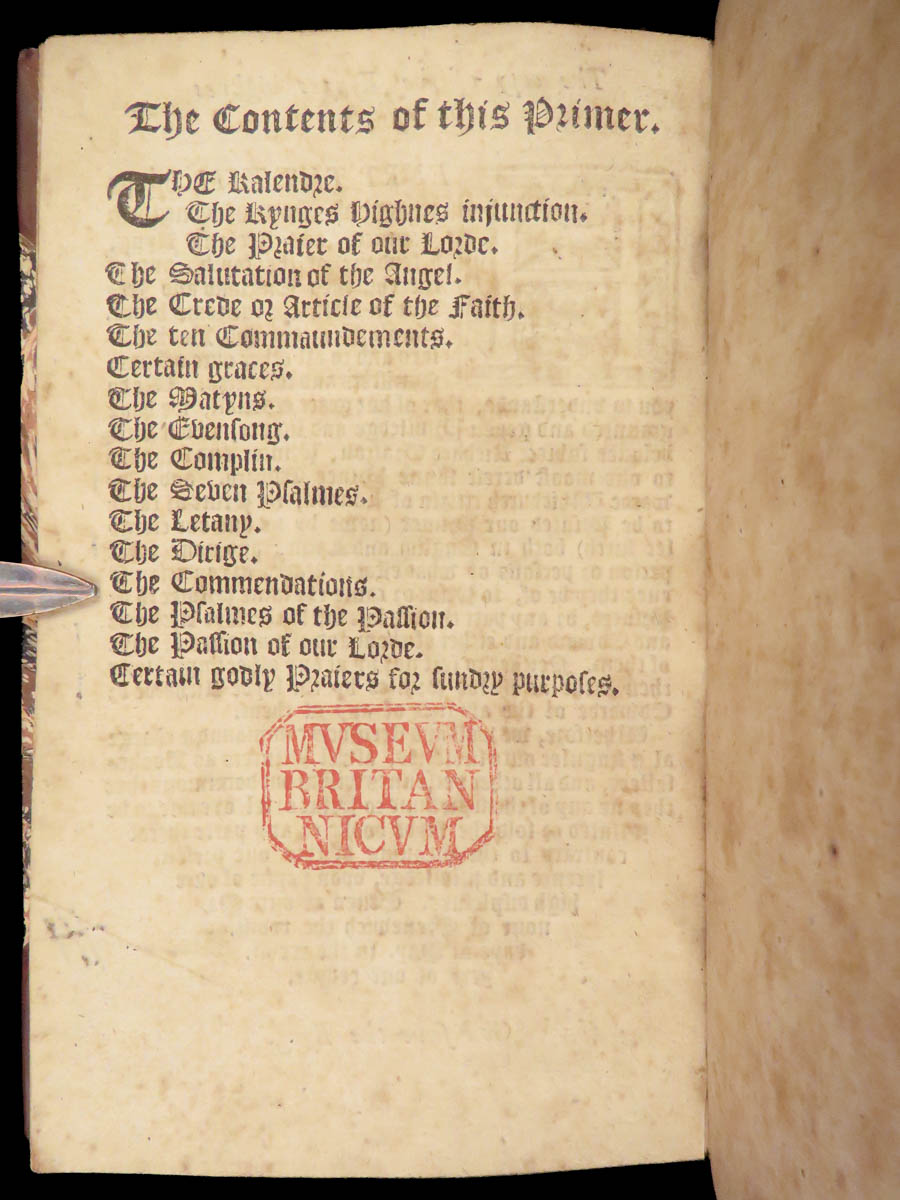 The Contents of this Primer.
THE Kalendre.
The Kynges Highnes injunction.
The Praier of our Lorde.
The Salutation of the Angel.
The Crede or Article of the Faith.
The ten Commaundements.
Certain graces.
The Matyns.
The Evenſong.
The Complin.
The Seven Pſalmes.
The Letany.
The Dirige.
The Commendations.
The Pſalmes of the Paſſion.
The Paſſion of our Lorde.
Certain godly Praiers for ſundry purpoſes.
MVSEVM
BRITAN
NICVM